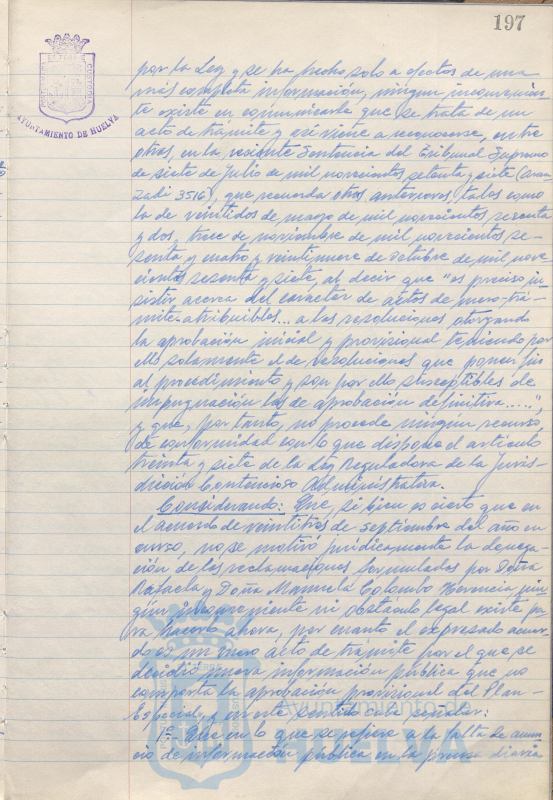 197
AYUNTAMIENTO DE HUELVA
por la Ley y se ha hecho solo a efectos de una
más completa información, ningun inconvenien-
te existe en comunicarle que se trata de un
acto de trámite y asi viene a reconocerse, entre
otras, en la reciente Sentencia del Tribunal Supremo
de siete de julio de mil novecientos setenta y siete (Aran
zadi 3516), que recuerda otras anteriores, tales como
la de veintidos de marzo de mil novecientos sesenta
y dos, trece de noviembre de mil novecientos se-
senta y cuatro y veintinueve de Octubre de mil nove-
cientos sesenta y siete, al decir que "es preciso in-
sistir acerca del caracter de actos de mero trá-
mite atribuibles... a las resoluciones otorgando
la aprobación inicial y provisional teniendo por
ello solamente el de resoluciones que ponen fin
al procedimiento y son por ello susceptibles de
impugnación las de aprobación definitiva.....",
y que, por tanto, no procede ningun recurso,
de conformidad con lo que dispone el artículo
treinta y siete de la Ley Reguladora de la Juris-
dicción Contencioso Administrativa.
Considerando: Que, si bien es cierto que en
el acuerdo de veintitres de septiembre del año en
curso, no se motivó jurídicamente la denega-
ción de las reclamaciones formuladas por Doña
Rafaela y Doña Manuela Colombo Herncia, nin-
gún inconveniente ni obstáculo legal existe pa-
ra hacerlo ahora, por cuanto el expresado acuer-
do es un mero acto de trámite por el que se
decidió nueva información pública que no
comporta la aprobación provisional del Plan
Especial, y en este sentido cabe señalar:
1º- Que en lo que se refiere a la falta de anun-
cio de información pública en la prensa diaria
Ayuntamiento de
HUELVA